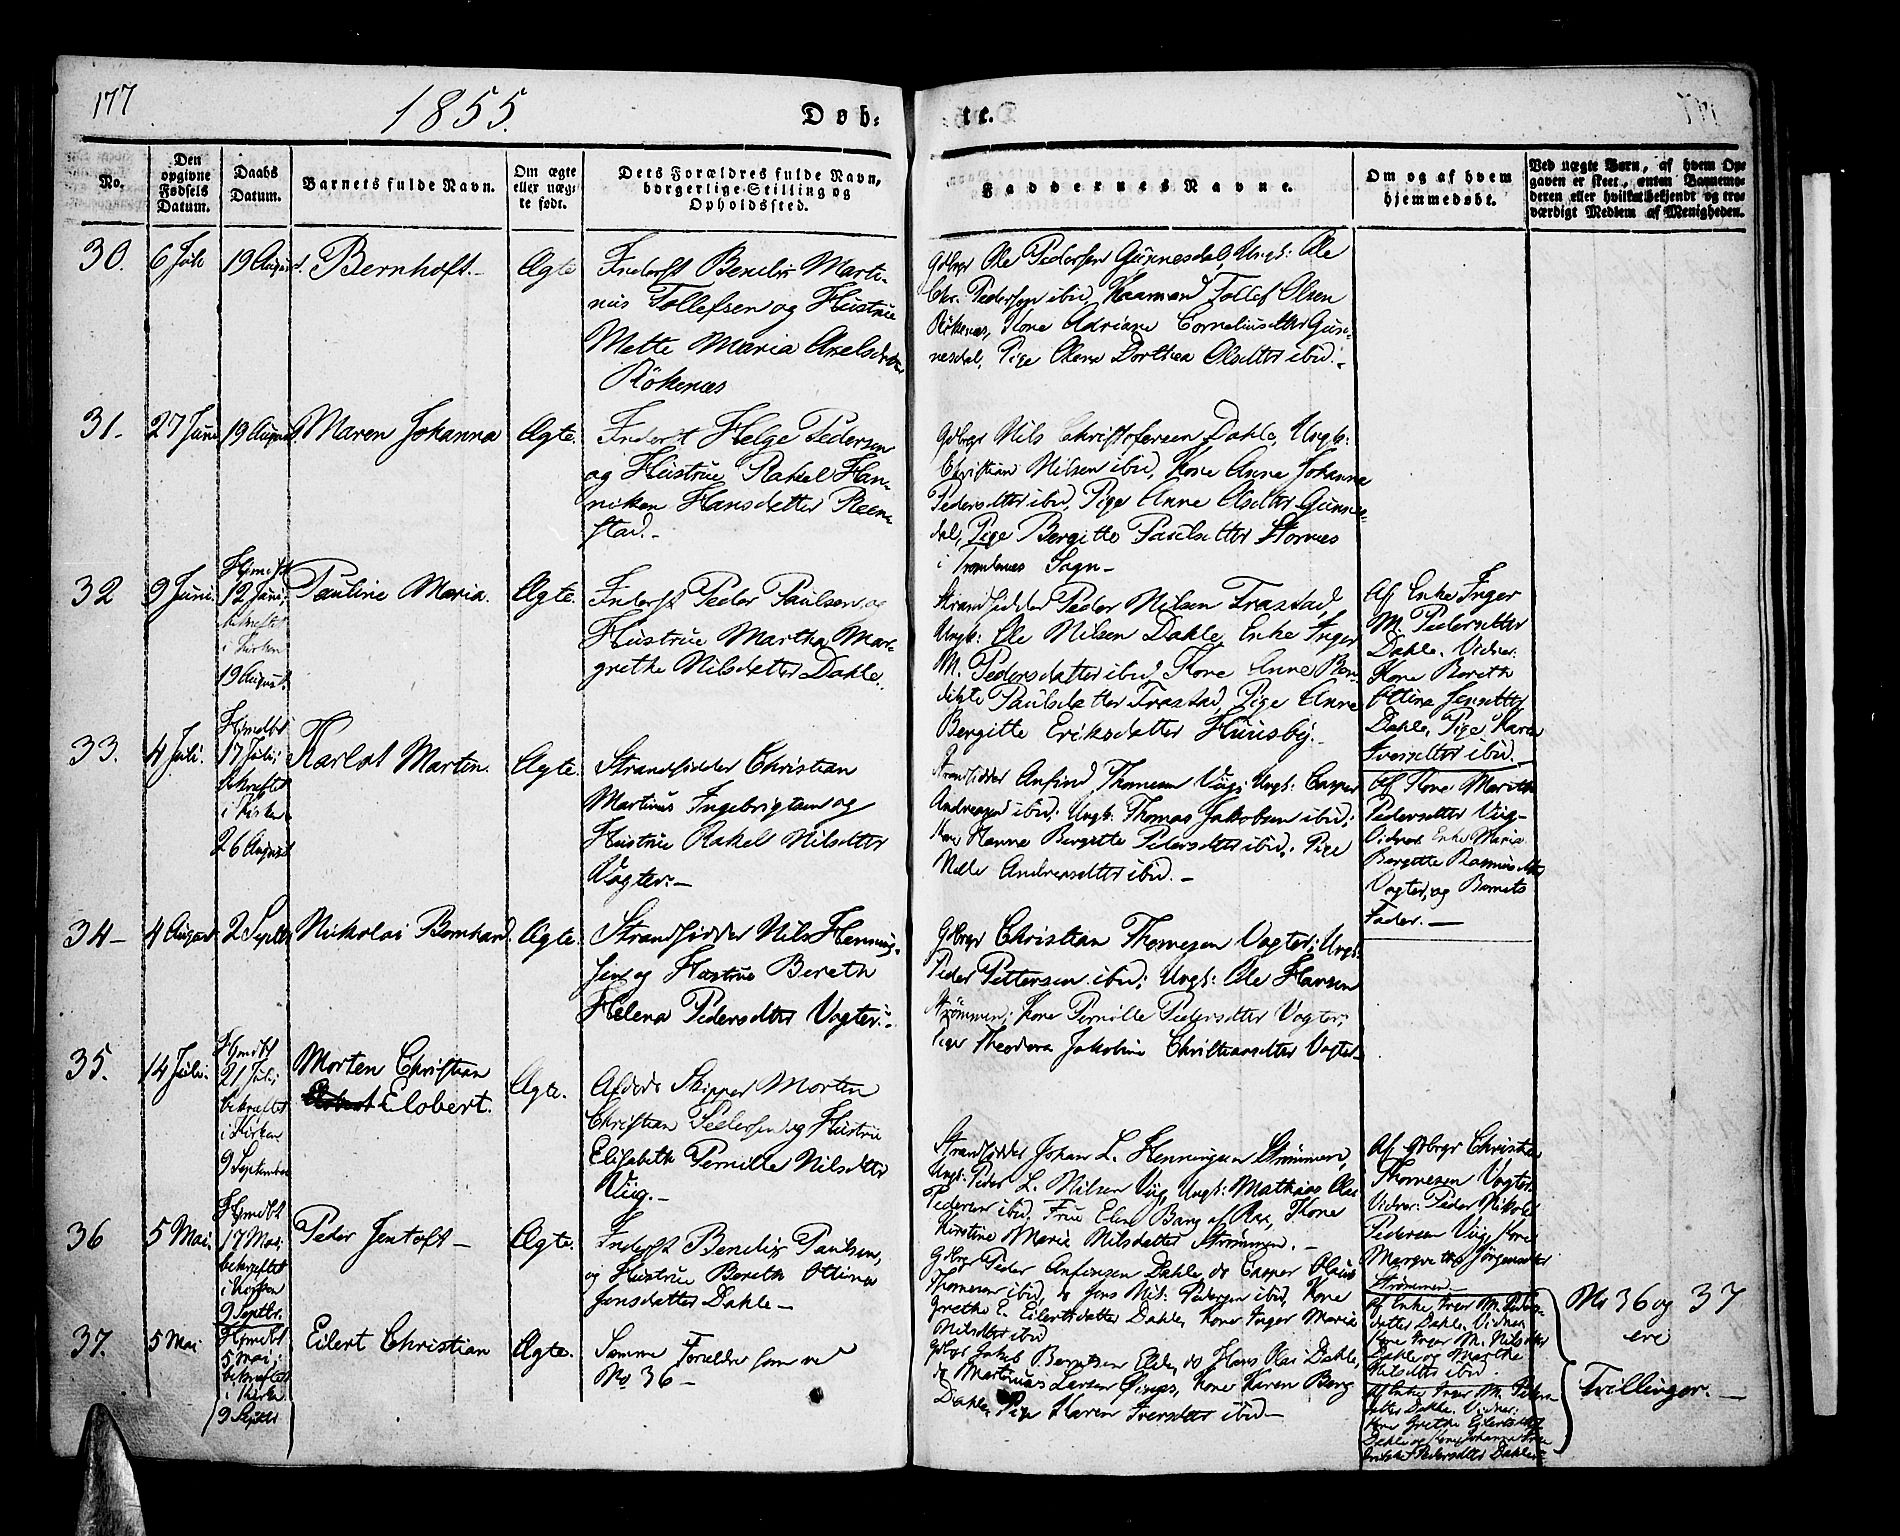 177
1855.
Døb-
te.
No.
Den
opgivne
Fødsels
Datum.
Daabs
Datum.
Barnets fulde Navn.
Om ægte
eller uæg-
te født.
Dets Forældres fulde Navn,
borgerlige Stilling og
Opholdssted.
Faddernes Navne.
Om og af hvem
hjemmedøbt.
Ved uægte Børn, af hvem Op-
gaven er skeet, enten Barnemo-
deren eller hvilket bekjendt og tro-
værdigt Medlem af Menigheden.
30.
6 Juli
19 August
Bernhoft.-
Ægte
Inderst Bendix Marti-
nus Tollefsen og Hustrue
Mette Maria Axelsdatter
Rökenæs
Gdbrgr Ole Pedersen Gunnesdal, Ungk: Ole
Chr: Pedersen ibid, Kaarmand Tollef Olsen
Rökenæs, Kone Adriane Corneliusdtter Gun-
nesdal, Pige Olena Dorthea Olsdtter ibid.-
31.
27 Juni
19 August
Maren Johanna
Ægte.
Inderst Helge Pedersen
og Hustrue Rakel Han-
niken Hansdatter Reen-
stad.-
Gdbrgr Nils Christofersen Dahle, Ungk:
Christian Nilsen ibid, Kone Anne Johanna
Pedersdtter ibid, Pige Anne Olsdtter Gunnes-
dal, Pige Bergitte Paulsdtter Stornæs
i Trondenæs Sogn-
32
9 Juni.
Hjmdbt
12 Juni;
bekræftet
i Kirken
19 August.
Pauline Maria.
Ægte.
Inderst Peder Paulsen og
Hustrue Martha Mar-
grethe Nilsdatter Dahle.
Strandsidder Peder Nilsen Trastad,
Ungk: Ole Nilsen Dahle, Enke Inger
M. Pedersdatter ibid, Kone Anne Ben-
dikte Paulsdatter Trastad, Pige Anne
Bergitte Eriksdatter Huusby.-
Af Enke Inger
M. Pedersdtter
Dahle. Vidner:
Kone Bereth
Ottina Jensdtter
Dahle, Pige Karen
Iversdtter ibid.
33.
4 Juli.
Hjmdbt
17 Juli;
bekræftet
i Kirken
26 August
Karlot Martin.
Ægte.
Strandsidder Christian
Martinus Ingebrigtsen og
Hustrue Rakel Nilsdtter
Vogter.-
Strandsidder Anfind Thomesen Viig; Ungk: Casper
Andreasen ibid; Ungk: Thomas Jakobsen ibid;
Kone Hanna Bergitte Pedersdtter ibid; Pige
Nelle Andreasdtter ibid.-
Af Kone Mareth
Pedersdtter Viig-
Vidner Enke Maria
Bergitte Rasmusdtter
Vogter, og Barnets
Fader.-
34-
4 August
2 Septbr
Nickolai Bernhard.
Ægte.
Strandsidder Nils Henning-
sen og Hustrue Bereth
Helena Pedersdtter Vogter.-
Gdbrgr Christian Thomesen Vogter; Ungk:
Peder Pettersen ibid; Ungk: Ole Hansen
Strömmen; Kone Pernille Pedersdtter Vogter;
Pige Theodora Jakobine Christiansdtter Vogter
35.
14 Juli.
Hjmdbt
21 Juli;
bekræftet
i Kirken
9 September
Morten Christian
Elobert.
Ægte.
Afdøde Skipper Morten
Christian Pedersen og Hustrue
Elisabeth Pernille Nilsdtter
Viig.-
Strandsidder Johan L. Henningsen Strømmen,
Ungk: Peder L. Nilsen Viig, Ungk: Mathias Olai
Pedersen ibid, Frue Elen Bang af Kone
Kirstine Maria Nilsdatter Strømmen.-
Af Gdbrgr Christian
Thomesen Vogter
Vidner: Peder Nikolai
Pedersen Viig, Kone
Margrethe Jörgensdtter
Strømmen
36
5 Mai.
Hjmdbt
17 Mai;
bekræftet
i Kirken
9 Septbr.
Peder Jentoft-
Ægte.
Inderst Bendix Paulsen,
og Hustrue Bereth Ottina
Jensdatter Dahle-
Gdbrgr Peder Anfinsen Dahle, do Casper Olaus
Thomesen ibid, do Jens Nil: Pedersen ibid, Kone
Grethe E. Eilertsdatter Dahle, Kone Inger Marie
Nilsdtter ibid
Af Enke Inger M. Peders-
datter Dahle. Vidner:
Kone Inger M. Nilsdtter
Dahle og Marthe
Nilsdtter ibid.
No 36 og 37
ere
Tvillinger.-
37.
5 Mai
Hjmdbt
5 Mai;
bekræftet
i Kirken
9 Septbr
Eilert Christian
Ægte.
Samme Forældre som ved
No 36-
Gdbrgr Jakob Berntsen Elde, do Hans Olai Dahle,
do Martinus Larsen Øines, Kone Karen Berg
Dahle, Pige Karen Iversdtter ibid-
Af Enke Inger M. Peders-
datter Dahle. Vidner:
Kone Grethe Eilertsdtter
Dahle og Kone Johanna
Pedersdtter Dahle